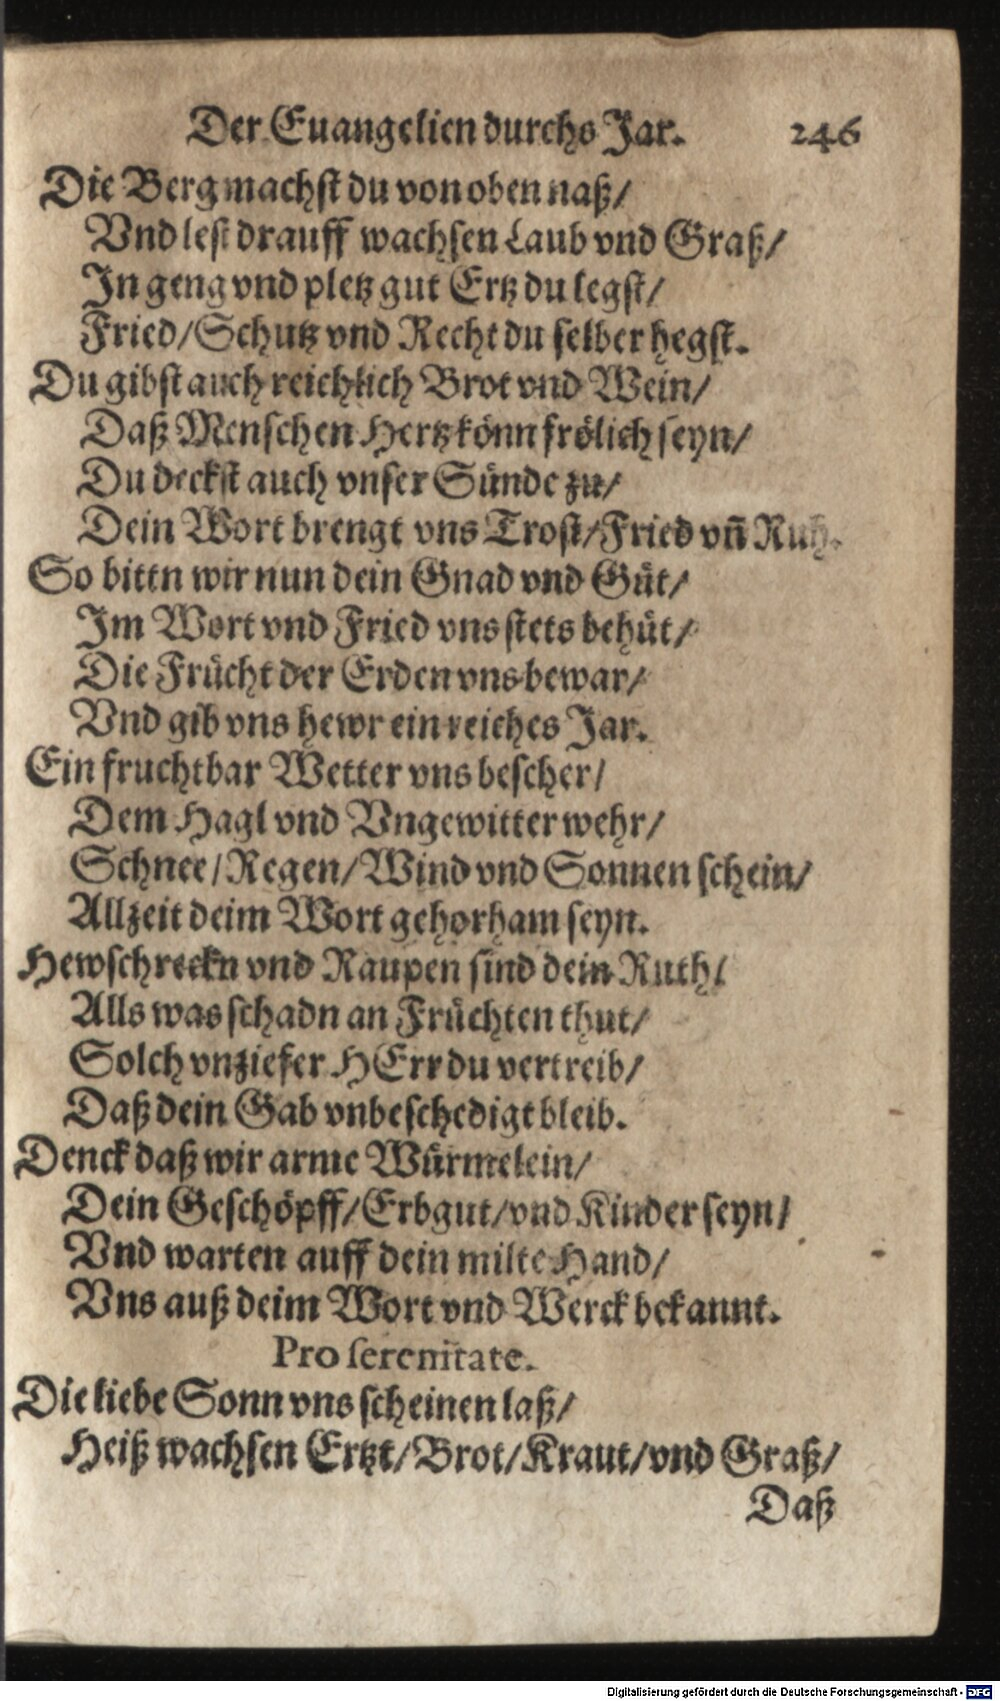 Der Euangelien durchs Jar. 246
Die Berg machst du von oben naß/
Vnd lest drauff wachsen Laub vnd Graß/
In geng vnd pletz gut Ertz du legst/
Fried/Schutz vnd Recht du selber hegst.
Du gibst auch reichlich Brot vnd Wein/
Daß Menschen Hertz könn frölich seyn/
Du deckst auch vnser Sünde zu/
Dein Wort brengt vns Trost/Fried vn̄ Ruh.
So bittn wir nun dein Gnad vnd Güt/
Im Wort vnd Fried vns stets behüt/
Die Frücht der Erden vns bewar/
Vnd gib vns hewr ein reiches Jar.
Ein fruchtbar Wetter vns bescher/
Dem Hagl vnd Vngewitter wehr/
Schnee/Regen/Wind vnd Sonnen schein/
Allzeit deim Wort gehorham seyn.
Hewschreckn vnd Raupen sind dein Ruth/
Alls was schadn an Früchten thut/
Solch vnziefer HErr du vertreib/
Daß dein Gab vnbeschedigt bleib.
Denck daß wir arme Würmelein/
Dein Geschöpff/Erbgut/vnd Kinder seyn/
Vnd warten auff dein milte Hand/
Vns auß deim Wort vnd Werck bekannt.
Pro serenitate.
Die liebe Sonn vns scheinen laß/
Heiß wachsen Ertzt/Brot/Kraut/vnd Graß/
Daß
Digitalisierung gefördert durch die Deutsche Forschungsgemeinschaft - DFG